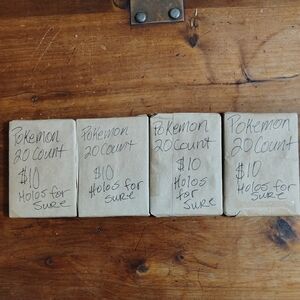 Pokemon
20 Count
$10
Holos for
Sure
Pokemon
20 Count
$10
Holos for
Sure
Pokemon
20 Count
$10
Holos
for
Sure
Pokemon
20 Count
$10
Holos for
Sure